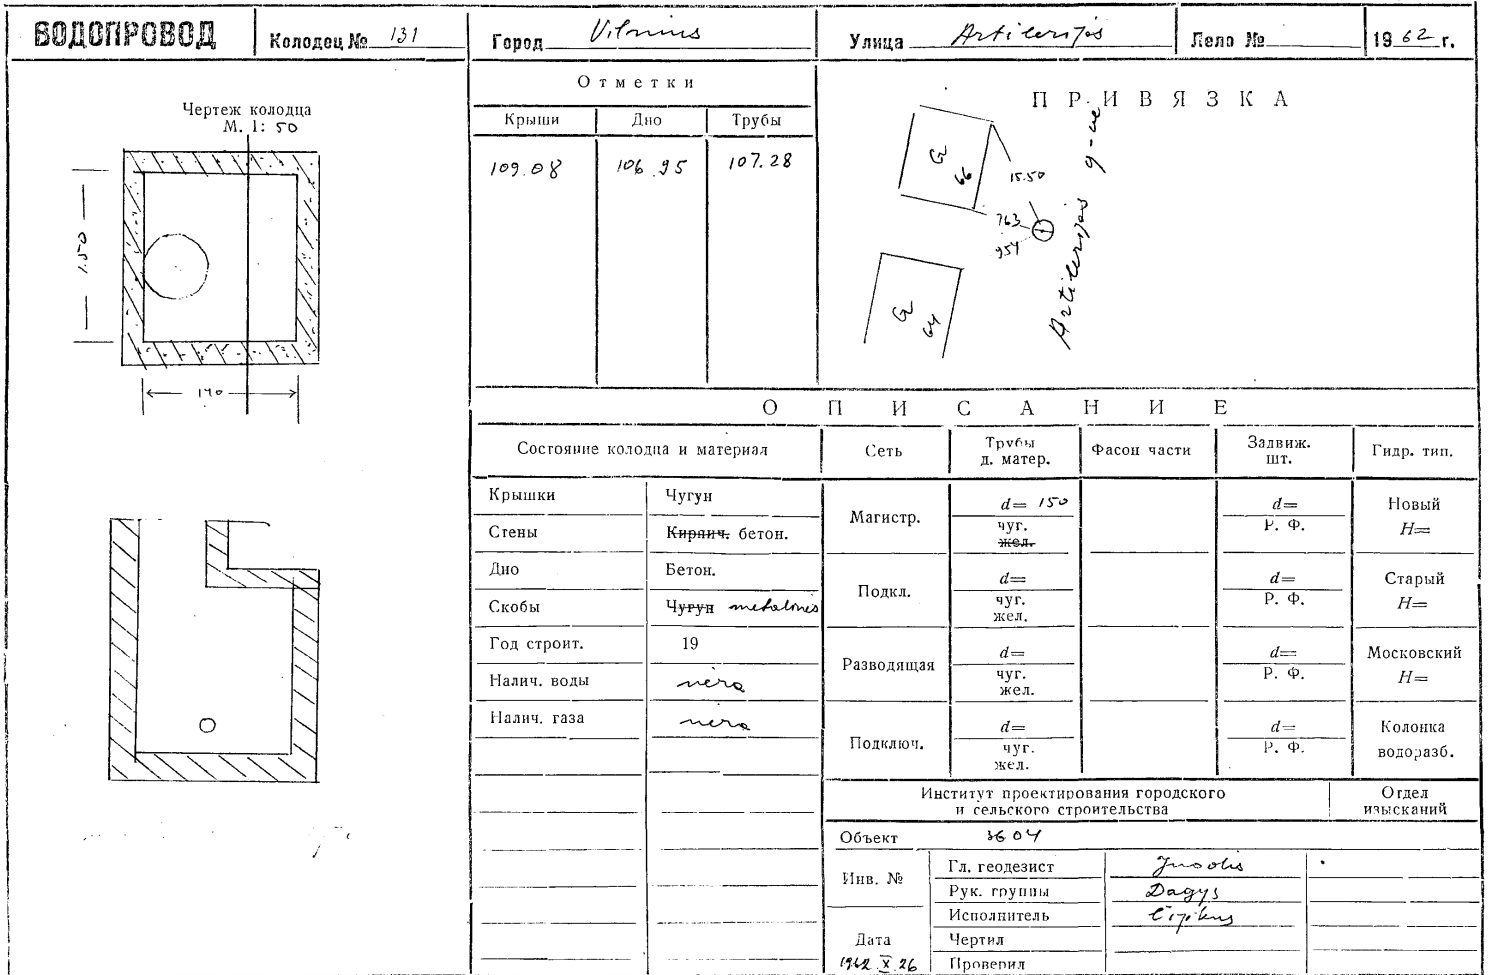 ВОДОПРОВОД
Колодец № 131
Город Vilnius
Улица Artilerijos
Дело №
1962 г.
Чертеж колодца
М. 1: 50
1.50
140
Отметки
Крыши Дно Трубы
109.08 106.95 107.28
ПРИВЯЗКА
G 66
15.50
763
954
G 64
Artilerijos g-vė
ОПИСАНИЕ
Состояние колодца и материал Сеть Трубы д. матер. Фасон части Задвиж. шт. Гидр. тип.
Крышки Чугун
Стены Кирпич. бетон.
Дно Бетон.
Скобы Чугун metalinės
Год строит. 19
Налич. воды nėra
Налич. газа nėra
Магистр. d= 150 чуг. жел. d= Р. Ф. Новый H=
Подкл. d= чуг. жел. d= Р. Ф. Старый H=
Разводящая d= чуг. жел. d= Р. Ф. Московский H=
Подключ. d= чуг. жел. d= Р. Ф. Колонка водоразб.
Институт проектирования городского
и сельского строительства
Отдел
изысканий
Объект 3604
Инв. №
Гл. геодезист
Рук. группы Dagys
Исполнитель
Дата
Чертил
1962 X 26
Проверил